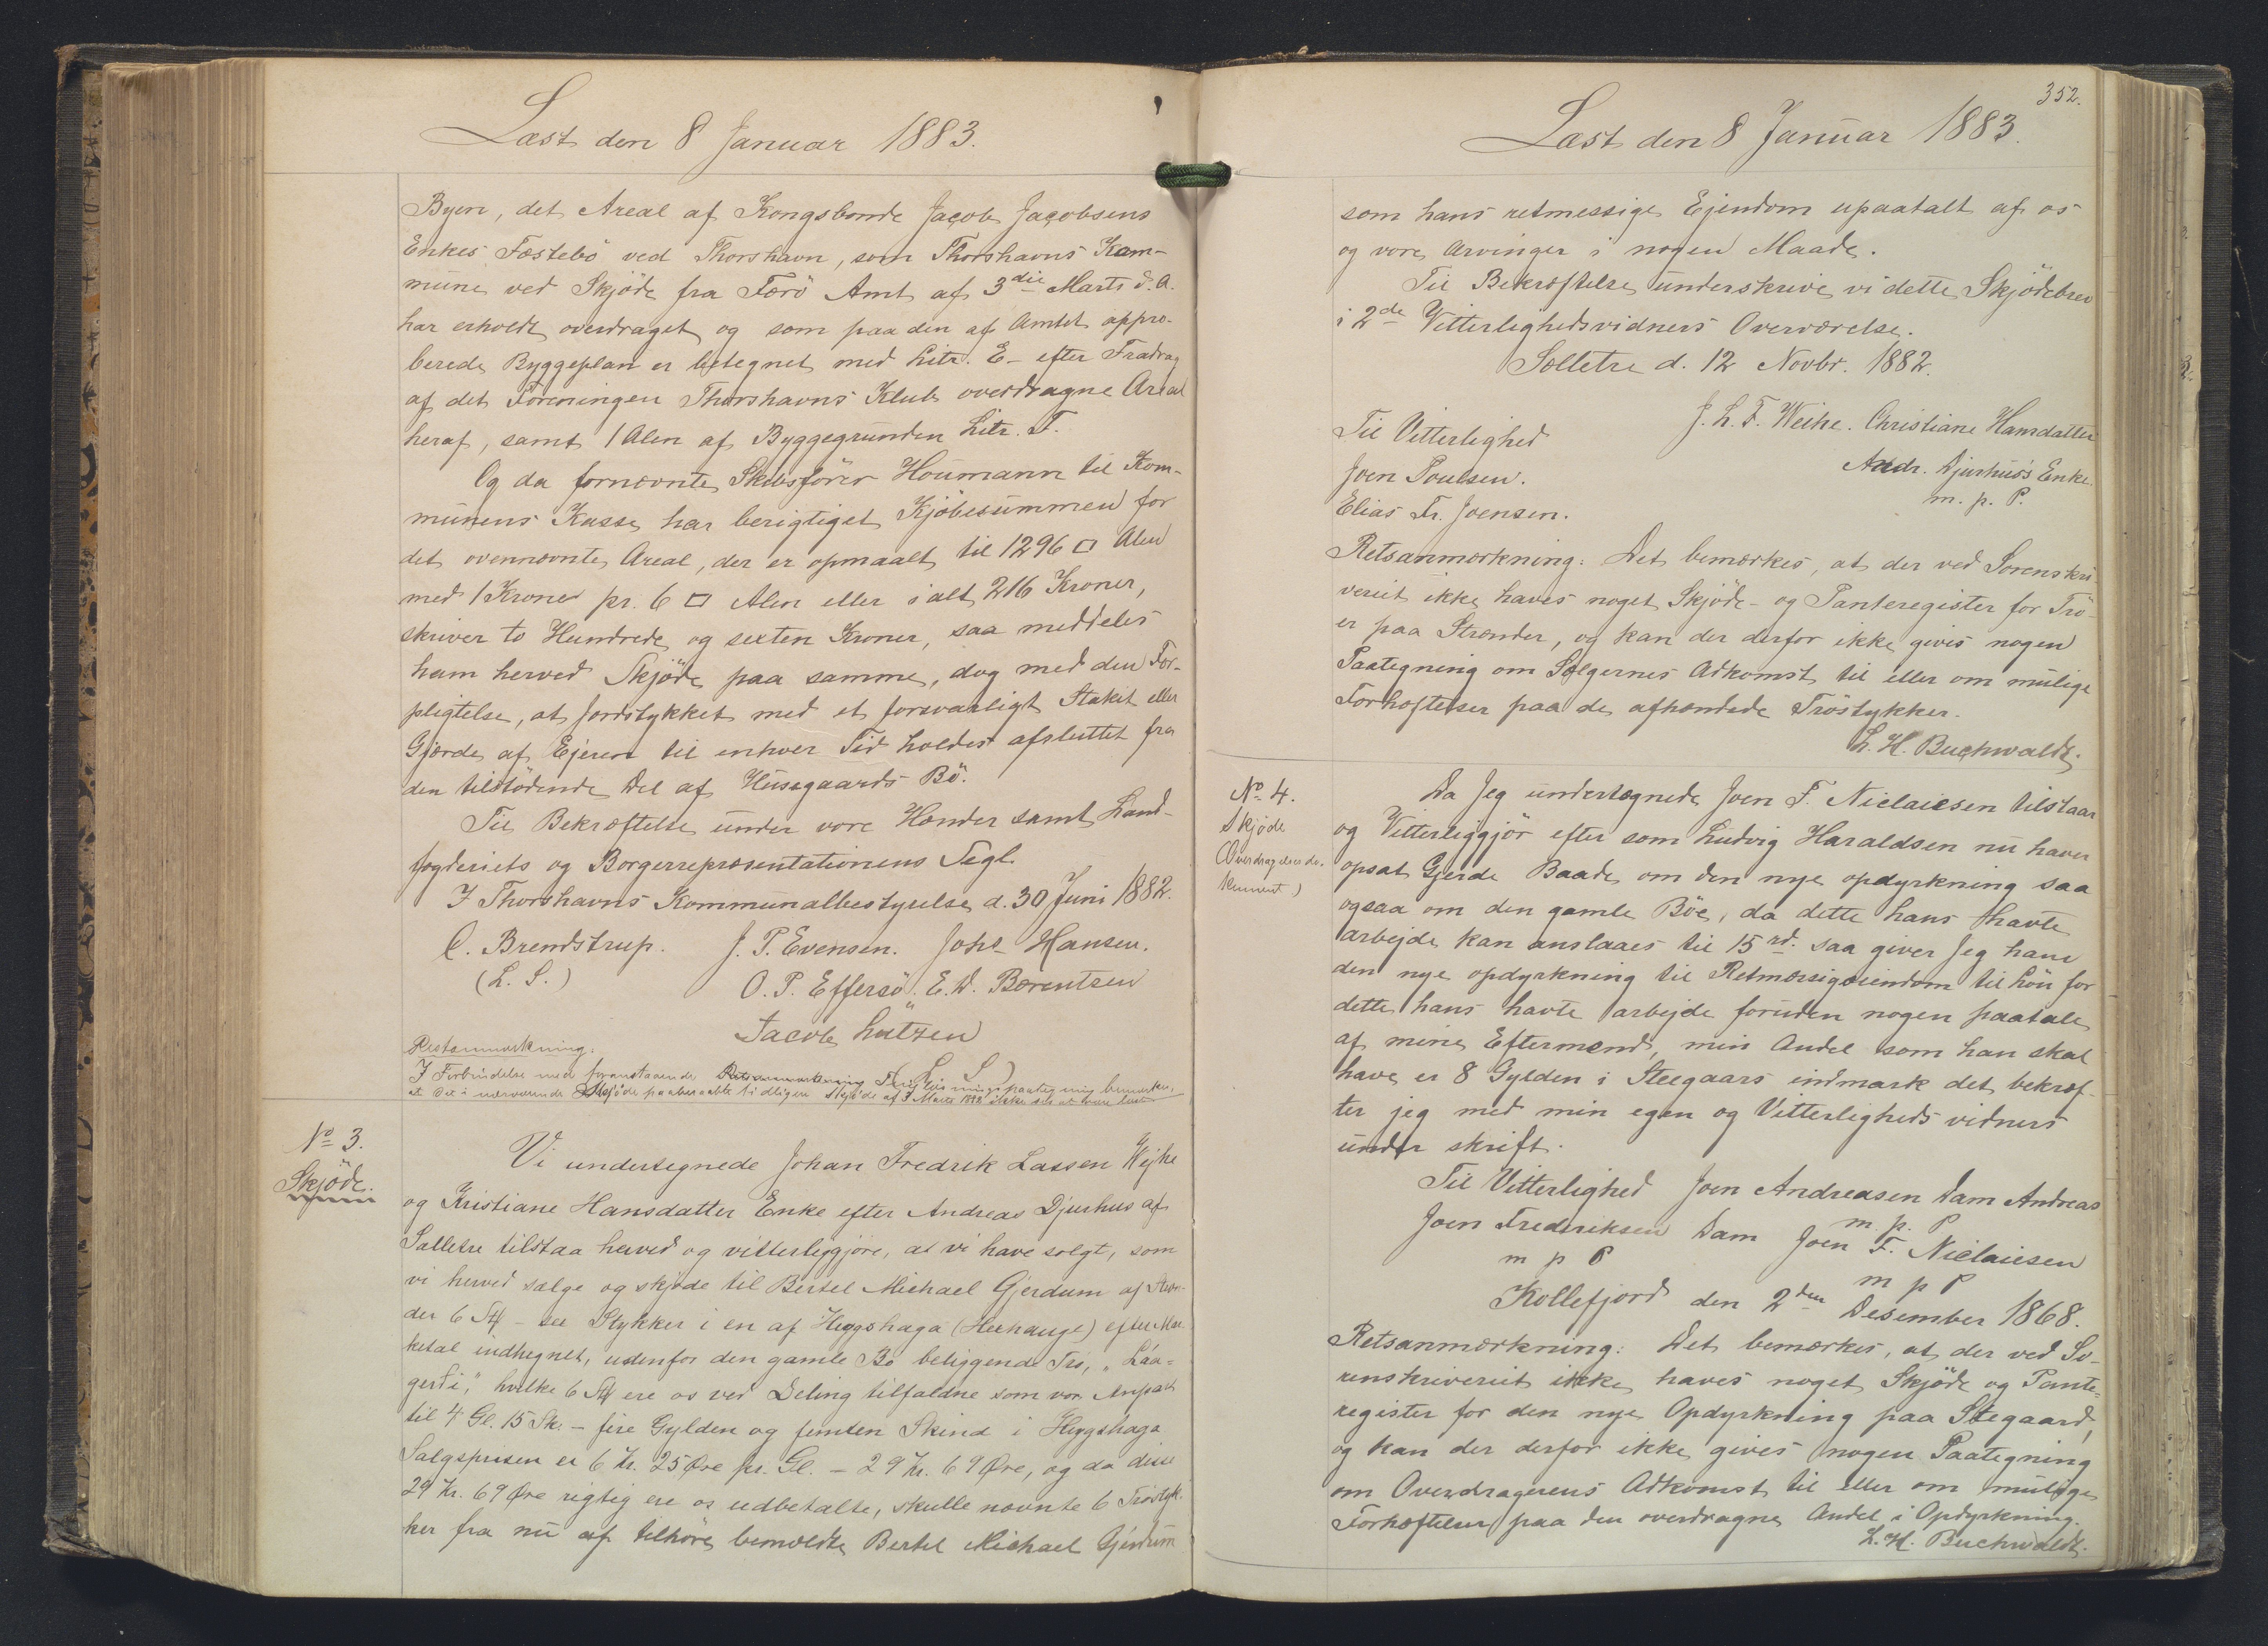 Læst den 8 Januar 1883.
Byen, det Areal af Kongsbonde Jacob Jacobsens
Enkes Fæstebö ved Thorshavn, som Thorshavns Kom-
mune ved Skjöde fra Færö Amt af 3die Marts d. A.
har erholdt overdraget og som paa den af Amtet appro-
berede Byggeplan er betegnet med Litr. E - efter Fradrag
af det Foreningen Thorshavns Klub overdragne Areal
heraf, samt 1 Alen af Byggegrunden Litr. F.
Og da fornævnte Skibsförer Houmann til Kom-
munens Kasse har berigtiget Kjöbesummen for
det ovennævnte Areal, der er opmaalt til 1296 □ Alen
med 1 Krone pr. 6 □ Alen eller ialt 216 Kroner,
skriver to Hundrede og sexten Kroner, saa meddeles
ham herved Skjöde paa samme, dog med den For-
pligtelse, at Jordstykket med et forsvarligt Stakit eller
Gjærde af Ejeren til enhver Tid holdes afsluttet fra
den tilstödende Del af Husegaards Bö.
Til Bekræftelse under vore Hænder samt Land-
fogderiets og Borgerrepræsentationens Segl.
I Thorshavns Kommunalbestyrelse d. 30 Juni 1882.
C. Brendstrup. J. P. Evensen. Johs Hansen.
(L. S.) O. P. Effersö. E. D. Bærentsen
Jacob Lützen
(L. S.)
Retsanmærkning:
I Forbindelse med foranstaaende Retsanmærkning paategning bemærkes,
at det i nærværende Skjöde paaberaabte tidligere Skjöde af 3 Marts 1882 ikke ses at være læst
No 3.
Skjöde.
Vi undertegnede Johan Fredrik Lassen Wejhe
og Kristiane Hansdatter Enke efter Andreas Djurhus af
Sælletre tilstaa herved og vitterliggjøre, at vi have solgt, som
vi herved sælge og skjøde til Bertel Michael Gjerdum af Stræn-
der 6 St - sex Stykker i en af Heygshaga (Herhauge) efter Mar-
ketal indhegnet, udenfor den gamle Bø beliggende Trø, "Láa-
gerði," hvilke 6 St ere os ved Deling tilfaldne som vor Anpart
til 4 Gl. 15 Sk. - fire Gylden og femten Skind i Heygshaga
Salgsprisen er 6 Kr. 25 Øre pr. Gl. - 29 Kr. 69 Øre, og da disse
29 Kr. 69 Øre rigtig ere os udbetalte, skulle nævnte 6 Trøstyk-
ker fra nu af tilhöre bemeldte Bertel Michael Gjerdum
352.
Læst den 8 Januar 1883.
som hans retmessige Ejendom upaatalt af os
og vore Arvinger i nogen Maade.
Til Bekræftelse underskrive vi dette Skjödebrev
i 2de Vitterlighedsvidners Overværelse.
Sælletre d. 12 Novbr. 1882.
J. L. F. Weihe. Christiane Hansdatter
Til Vitterlighed Andr. Djurhus's Enke.
Joen Poulsen. m. p. P.
Elias Fr. Joensen.
Retsanmærkning: Det bemærkes, at der ved Sorenskri-
veriet ikke haves noget Skjöde- og Panteregister for Trö-
er paa Strænder, og kan der derfor ikke gives nogen
Paategning om Sælgernes Adkomst til eller om mulige
Forhæftelser paa de afhændede Tröstykker.
L. H. Buchwaldt.
No 4.
Skjøde
(Overdragelsesdo-
kument)
Da Jeg undertegnede Joen F. Niclaiesen tilstaar
og Vitterliggjör efter som Ludvig Haraldsen nu haver
opsat Gjerde Baade om den nye opdyrkning saa
ogsaa om den gamle Böe, da dette hans havte
arbejde kan anslaaes til 15 rd. saa giver Jeg ham
den nye opdyrkning til Retmæssigeiendom til Lön for
dette hans havte arbejde foruden nogen paatale
af mine Eftermænd, min Andel som han skal
have er 8 Gylden i Steegaars indmark det bekræf-
ter jeg med min egen og Vitterligheds vidners
under skrift.
Til Vitterlighed Joen Andreasen Dam Andreas
m. p. P
Joen Fredriksen Dam Joen F. Niclaiesen
m p P m p P
Kollefjord den 2den Desember 1868.
Retsanmærkning: Det bemærkes, at der ved So-
renskriveriet ikke haves noget Skjöde og Pante-
register for den nye Opdyrkning paa Stegaard,
og kan der derfor ikke gives nogen Paategning
om Overdragerens Adkomst til eller om mulige
Forhæftelser paa den overdragne Andel i Opdyrkning.
L. H. Buchwaldt.